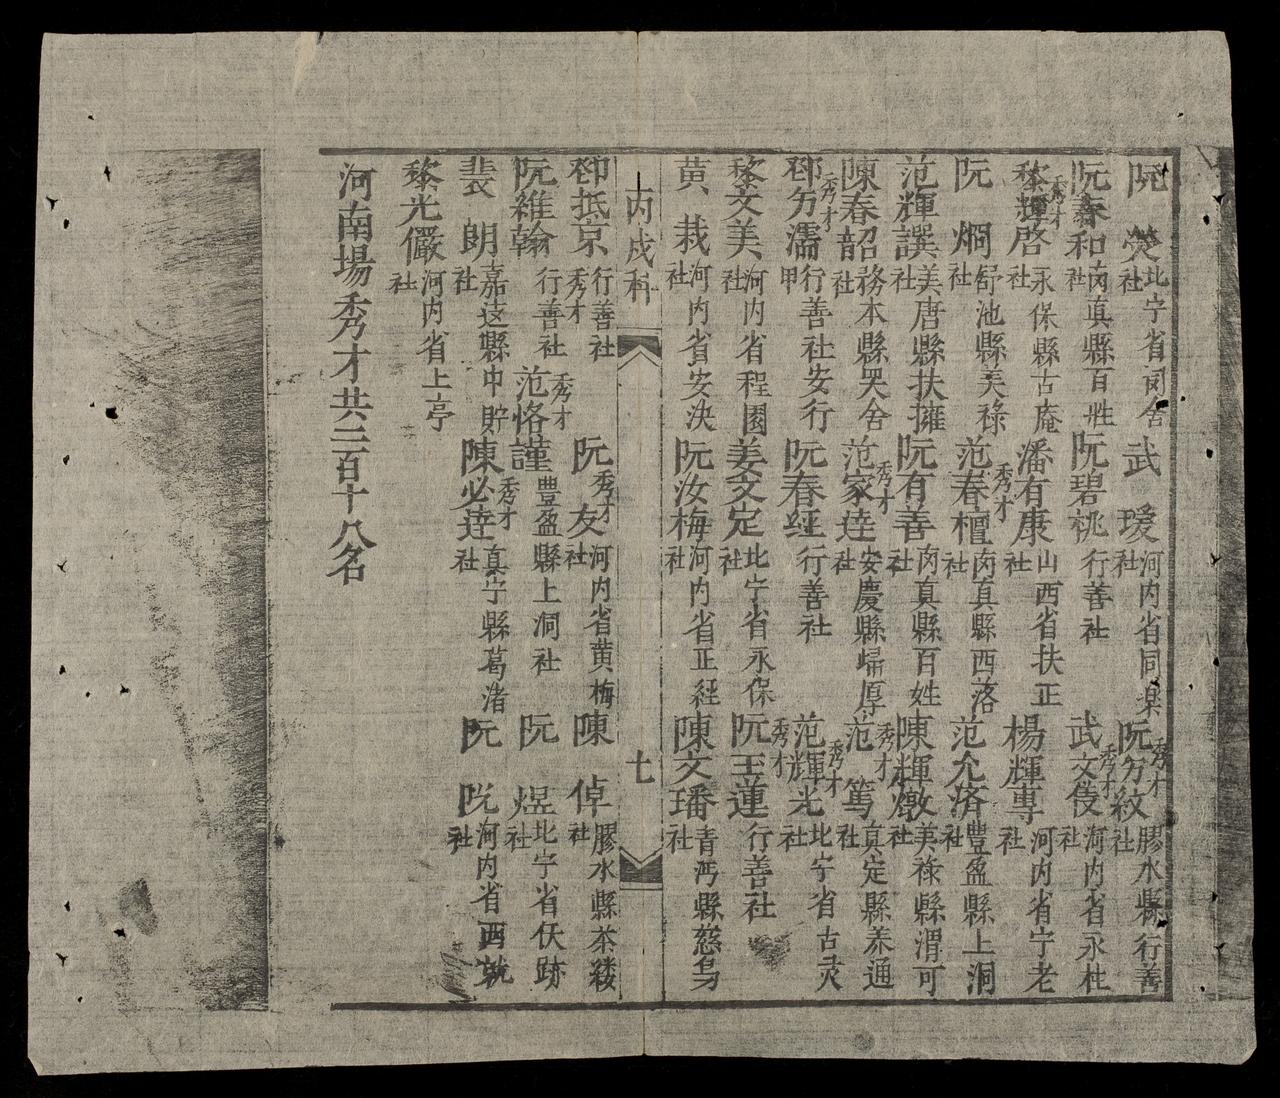 阮 熒 北宁省同舍社 武 瑗 河内省同楽社 阮勿紋 秀才 膠水縣行善社
阮春和 南真縣百姓社 阮碧桃 行善社 武文伎 秀才 河内省永杜社
黎輝啓 秀才 永保縣古庵社 潘有康 山西省扶正社 楊輝專 河内省宁老社
阮 烱 舒池縣美祿社 范春檀 秀才 南真縣西落社 范允济 豊盈縣上洞社
范輝譔 美唐縣扶擁社 阮有善 南真縣百姓社 陳輝燉 美祿縣渭可社
陳春韶 務本縣哭舍社 范家達 秀才 安慶縣歸厚社 范 篤 秀才 真定縣养通社
鄧勿濡 秀才 行善社安行甲 阮春經 行善社 范輝光 秀才 北宁省古灵社
黎文美 河内省程園社 姜文定 北宁省永保社 阮玉蓮 秀才 行善社
黄 栽 河内省安决社 阮汝梅 河内省正經社 陳文璠 青沔縣慈烏社
丙戌科 七
鄧抵京 行善社 秀才 阮 友 秀才 河内省黄梅社 陳 倬 膠水縣茶縷社
阮維翰 行善社 范恪謹 秀才 豊盈縣上洞社 阮 煜 北宁省伏跡社
裴 朗 嘉遠縣中貯社 陳必達 秀才 真宁縣葛渚社 阮 侊 河内省西就社
黎光儼 河内省上亭社
河南場秀才共二百十八名